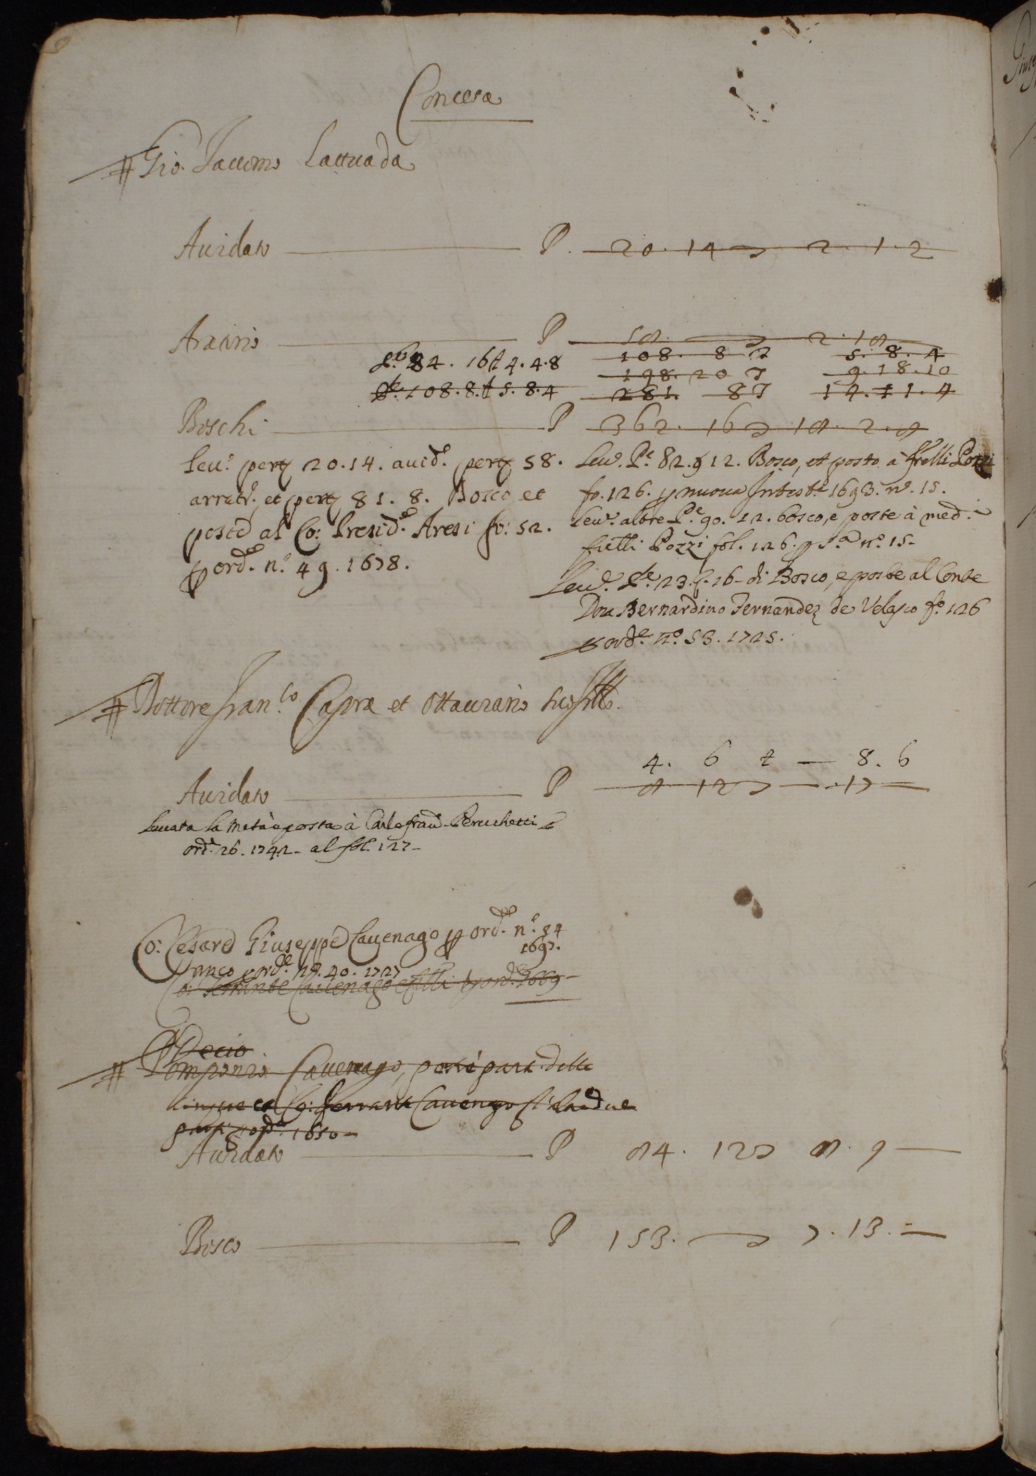 Concesa
Gio. Jacomo Lattuada
Auidato P. 20. 14 2. 1. 2
Aratorio P 58. 2. 18
84. 16 4. 4. 8 108. 8 5. 8. 4
108. 8. 5. 8. 4 198. 20 9. 18. 10
281. 8 14. 11. 4
Boschi P 362. 16 18. 2. 8
Leu.e pert. 20. 14. auid.o pert. 58.
arrat.o, et pert. 81. 8. Bosco et
poste al Co: Presid.e Aresi fo: 52.
p ord.e n.o 49. 1678.
Leu.e P.e 82. 12. Bosco, et poste à frelli Pozzi
fo. 126. p nuoua Intest.e 1693. n.o 15.
Leu.e altre P.e 90. 12. bosco, e poste à med.i
frelli Pozzi fol. 126. n.o 15.
Leu.e P.e 23. 16 di Bosco, e poste al Conte
Don Bernardino Fernandez de Velasco fo. 126
p ord.e n.o 53. 1725.
Dottore Fran.co Capra et Ottauiano
4. 6 8. 6
Auidato P 8 12 17
leuata la metà e posta à Carlo Fran.co Peruchetti
ord.e 26. 1742 al fol. 127
Co: Cesare Giuseppe Cauenago p ord.e n.o 54
1697.
p ord.e n.o 40. 1727
Co: Ferrante Cauenago e fratelli p ord.e 1669
Decio
Pomponio Cauenago, per le parti delle
cinque et Co: Ferrante Cauenago le due
1650
Auidato P 84. 12 8. 9
Bosco P 153. 7. 13.